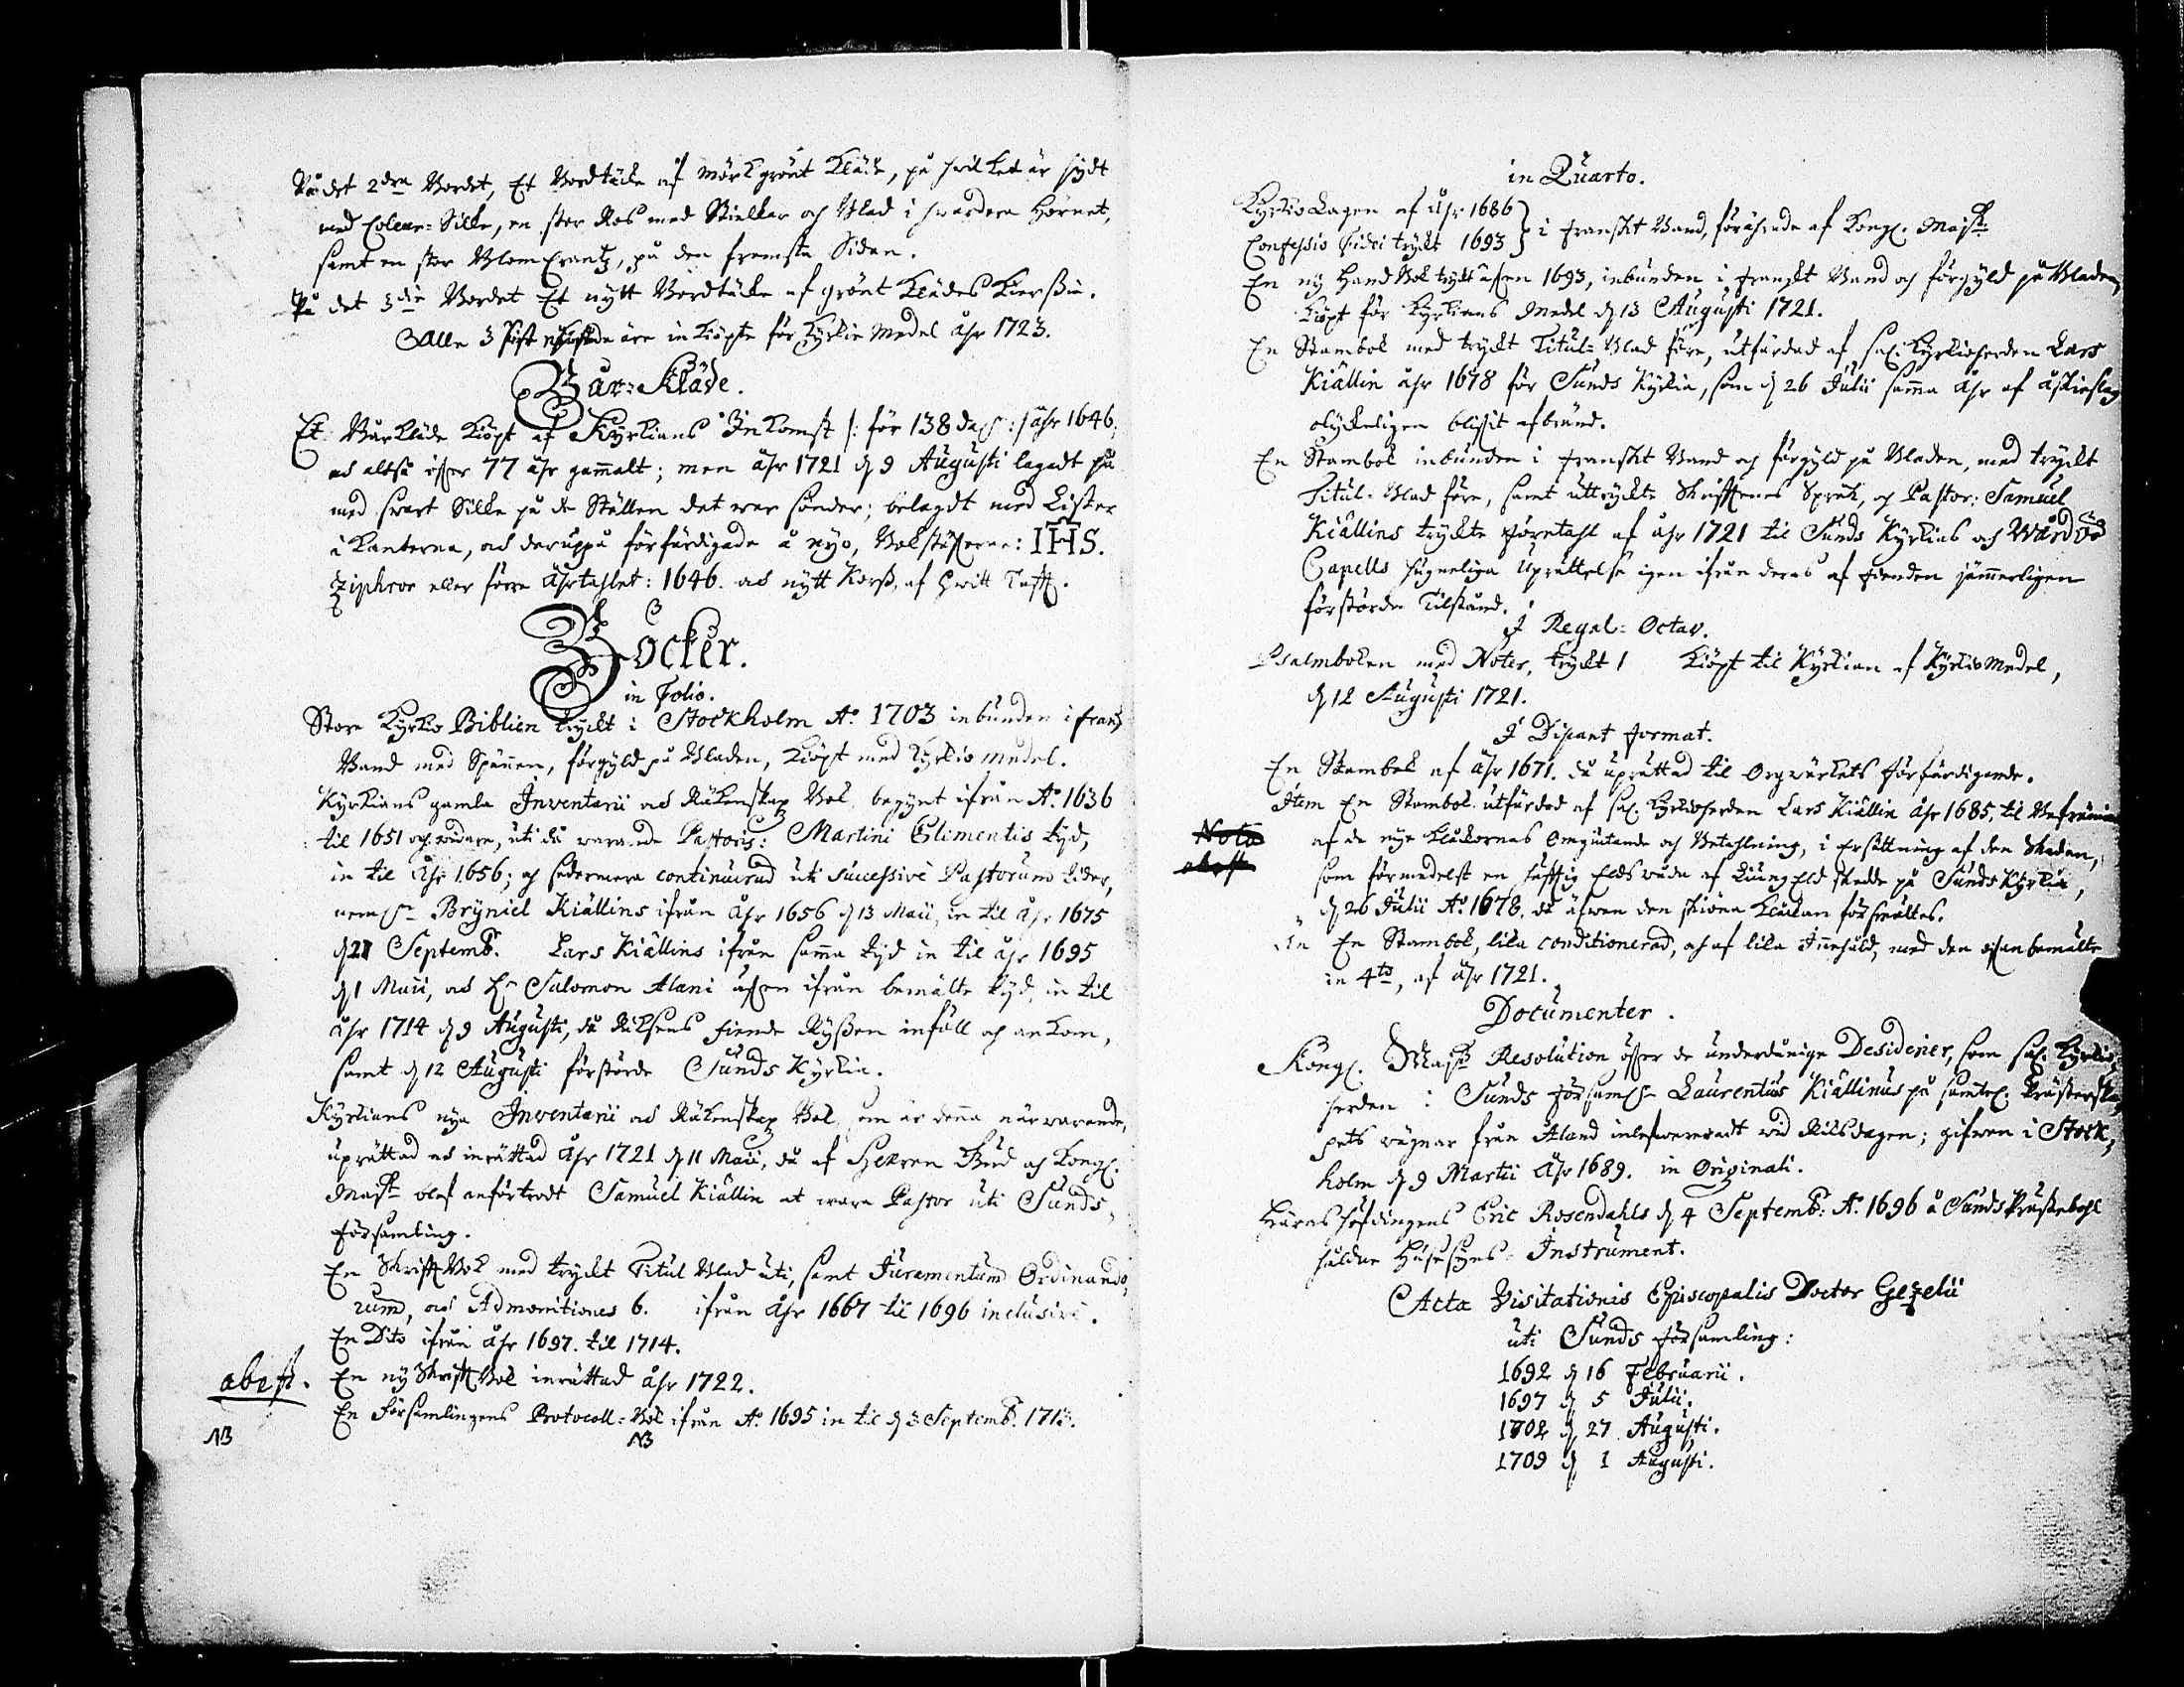 På det 2dra Bordet, Et Bordtäcke af mörkgrönt Kläde, på hvilket är sydt
med Coleur-Silke, en stor Ros med Stielkar och Blad i hvardera Hörnet,
samt en stor Blom Crantz, på den fremsta Sidan.
På det 3die Bordet Et nytt Bordtäcke af grönt Klädes Kierssin.
Alla 3 sist äro inkiöpte för Kyrkio Medel åhr 1723.
Bår-Kläde.
Et Bårkläde kiöpt af Kyrkians Inkomst /: för 138 dal :/ åhr 1646,
och altså öfver 77 åhr gammalt; men åhr 1721 d 9 Augusti lagadt
med svart Silke på de Ställen det war sönder; belagdt med Lister
i Kanterna, och deruppå förfärdigade å nyo, Bokstäfverne: IHS.
Ziphror eller förre Åhrtahlet: 1646. och nytt Korss, af hvitt Tafft.
Böcker.
in Folio.
Store Kyrkio Biblien tryckt i Stockholm A:o 1703 inbunden i frantz
Band med Spännen, förgyld på Bladen, kiöpt med Kyrkio medel.
Kyrkians gamla Inventarii och Räkenskaps Bok, begynt ifrån A:o 1636
til 1651 och vidare, uti då warande Pastoris: Martini Climentis tyd,
in til Åhr 1656; och sedermera continuerad uti successive Pastorum tider,
neml:n Bryniel Kiällins ifrån Åhr 1656 d 13 Maii, in til Åhr 1675
d 21 Septemb. Lars Kiällins ifrån samma tyd in til åhr 1695
d 1 Maii, och Hr Salomon Alani äfven ifrån bemälte tyd, in til
åhr 1714 d 9 Augusti, då Riksens fiende Ryssen inföll och ankom,
samt d 12 Augusti förstörde Sunds Kyrkia.
Kyrkians nya Inventarii och Räkenskaps Bok, som är denna närvarande,
uprättad och inrättad Åhr 1721 d 11 Maii, då af Herren Gud och Kongl.
Majst blef anförtrodt Samuel Kiällin at wara Pastor uti Sunds
Församling.
En Skrifft Bok med tryckt Titul Blad uti, samt Juramentum Ordinando,
rum, och Admonitiones 6. ifrån Åhr 1667 til 1696 inclusive.
En Dito ifrån åhr 1697. til 1714.
abest. En ny Skrifft Bok inrättad åhr 1722.
En Församlingens Protocoll-Bok ifrån A:o 1695 in til d 3 Septemb. 1713.
NB NB
in Quarto.
Kyrkio Lagen af åhr 1686
Confessio Fidei tryckt 1693 } i franskt Band, förährade af Kongl. Majst
En ny Hand Bok tryckt åhren 1693, inbunden i franskt Band och förgyld på Bladen,
kiöpt för Kyrkians Medel d 13 Augusti 1721.
En Stambok med tryckt Titul-Blad före, utfärdad af sal. Kyrkioherden Lars
Kiällin åhr 1678 för Sunds Kyrkia, som d 26 Julii samma åhr af åskieslag
olyckeligen blifvit afbränd.
En Stambok inbunden i franskt Band och förgyld på Bladen, med tryckt
Titul-Blad före, samt uttryckte Skrifftenes Språk, och Pastor: Samuel
Kiällins tryckte Företahl af åhr 1721 til Sunds Kyrkias och Wårdöö
Capells hugneliga Uprättelse igen ifrån deras af Fienden jämmerligen
förstörde Tilstånd.
I Regal-Octav.
Psalmboken med Noter, tryckt 1 kiöpt til Kyrkian af Kyrkio Medel,
d 12 Augusti 1721.
I Discant format.
En Stambok af Åhr 1671. då uprättad til Orgvärkets förfärdigande.
Item En Stambok utfärdad af sal. Kyrkioherden Lars Kiällin åhr 1685, til
Nota af de nye Klåckornas Omgiutande och Betahlning, i Ersättning af den Skadan,
abest som förmedelst en häfftig Elds wåda af Liung Eld skedde på Sunds Kyrkia,
d 26 Julii A:o 1678, då äfwen den sköna Klåckan försmältes.
En Stambok, lika conditionerad, och af lika Innehåld, med den ofvanbemälte
in 4to, af åhr 1721.
Documenter.
Kongl. Majst Resolution öfver de underdånige Desiderier, som sal. Kyrkio-
herden i Sunds Församl:n Laurentius Kiällinus på samtel. Prästerska-
pets wägnar från Åland inlefwereradt wid Riksdagen; gifwen i Stock-
holm d 9 Martii Åhr 1689. in Originali.
Häradshöfdingens Eric Rosendahls d 4 Septemb: A:o 1696 å Sunds Prästebohl
håldne Husesyns-Instrument.
Acta Visitationis Episcopalis Doctor Gezelii
uti Sunds Församling:
1692 d 16 Februarii.
1697 d 5 Julii.
1702 d 27 Augusti.
1709 d 1 Augusti.